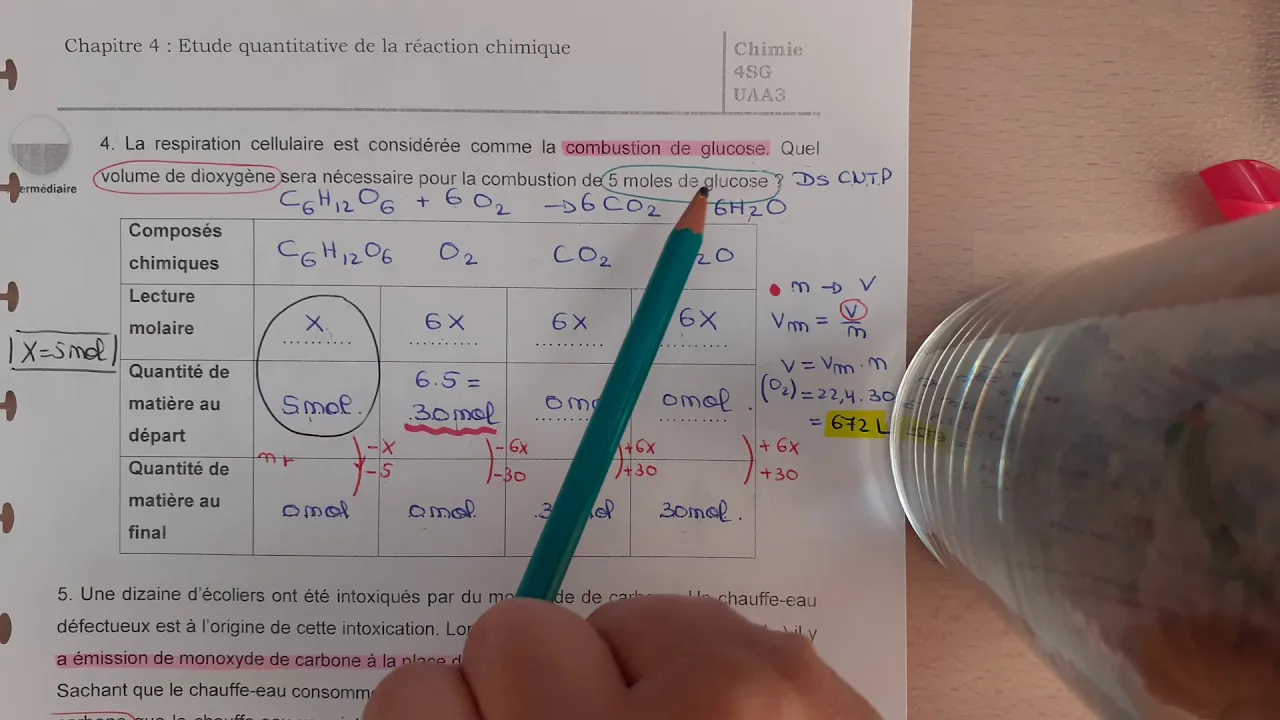 Chapitre 4 : Etude quantitative de la réaction chimique
Chimie
4SG
UAA3
4. La respiration cellulaire est considérée comme la combustion de glucose. Quel
volume de dioxygène sera nécessaire pour la combustion de 5 moles de glucose ? Ds C.N.T.P
ermédiaire
C6H12O6 + 6 O2 → 6 CO2 6H2O
Composés chimiques
C6H12O6 O2 CO2 2O
Lecture molaire
X 6X 6X 6X
|X=5mol|
Quantité de matière au départ
5mol. 6.5 = 30mol 0mol 0mol.
n r
-X -6X +6X +6X
-5 -30 +30 +30
Quantité de matière au final
0mol 0mol. 30mol.
• n → V
Vm = V/n
V = Vm . n
(O2) = 22,4 . 30
= 672 L
5. Une dizaine d'écoliers ont été intoxiqués par du de chauffe-eau
défectueux est à l'origine de cette intoxication. il y
a émission de monoxyde de carbone à la place
Sachant que le chauffe-eau
carbone que le